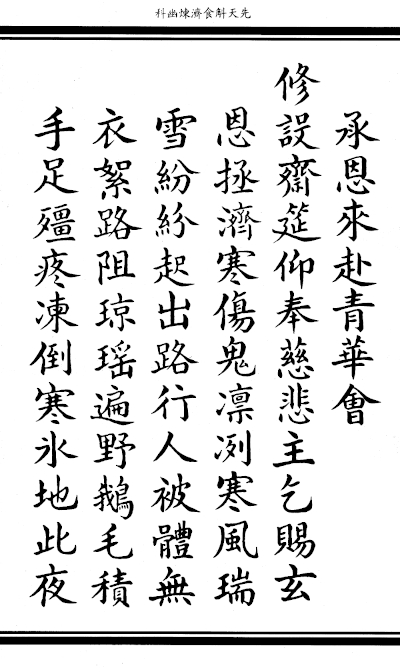 科幽煉濟食斛天先
承恩來赴青華會
修設齋筵仰奉慈悲主乞賜玄
恩拯濟寒傷鬼凛冽寒風瑞
雪紛紛起出路行人被體無
衣絮路阻琼瑶遍野鵝毛積
手足殭疼凍倒寒氷地此夜